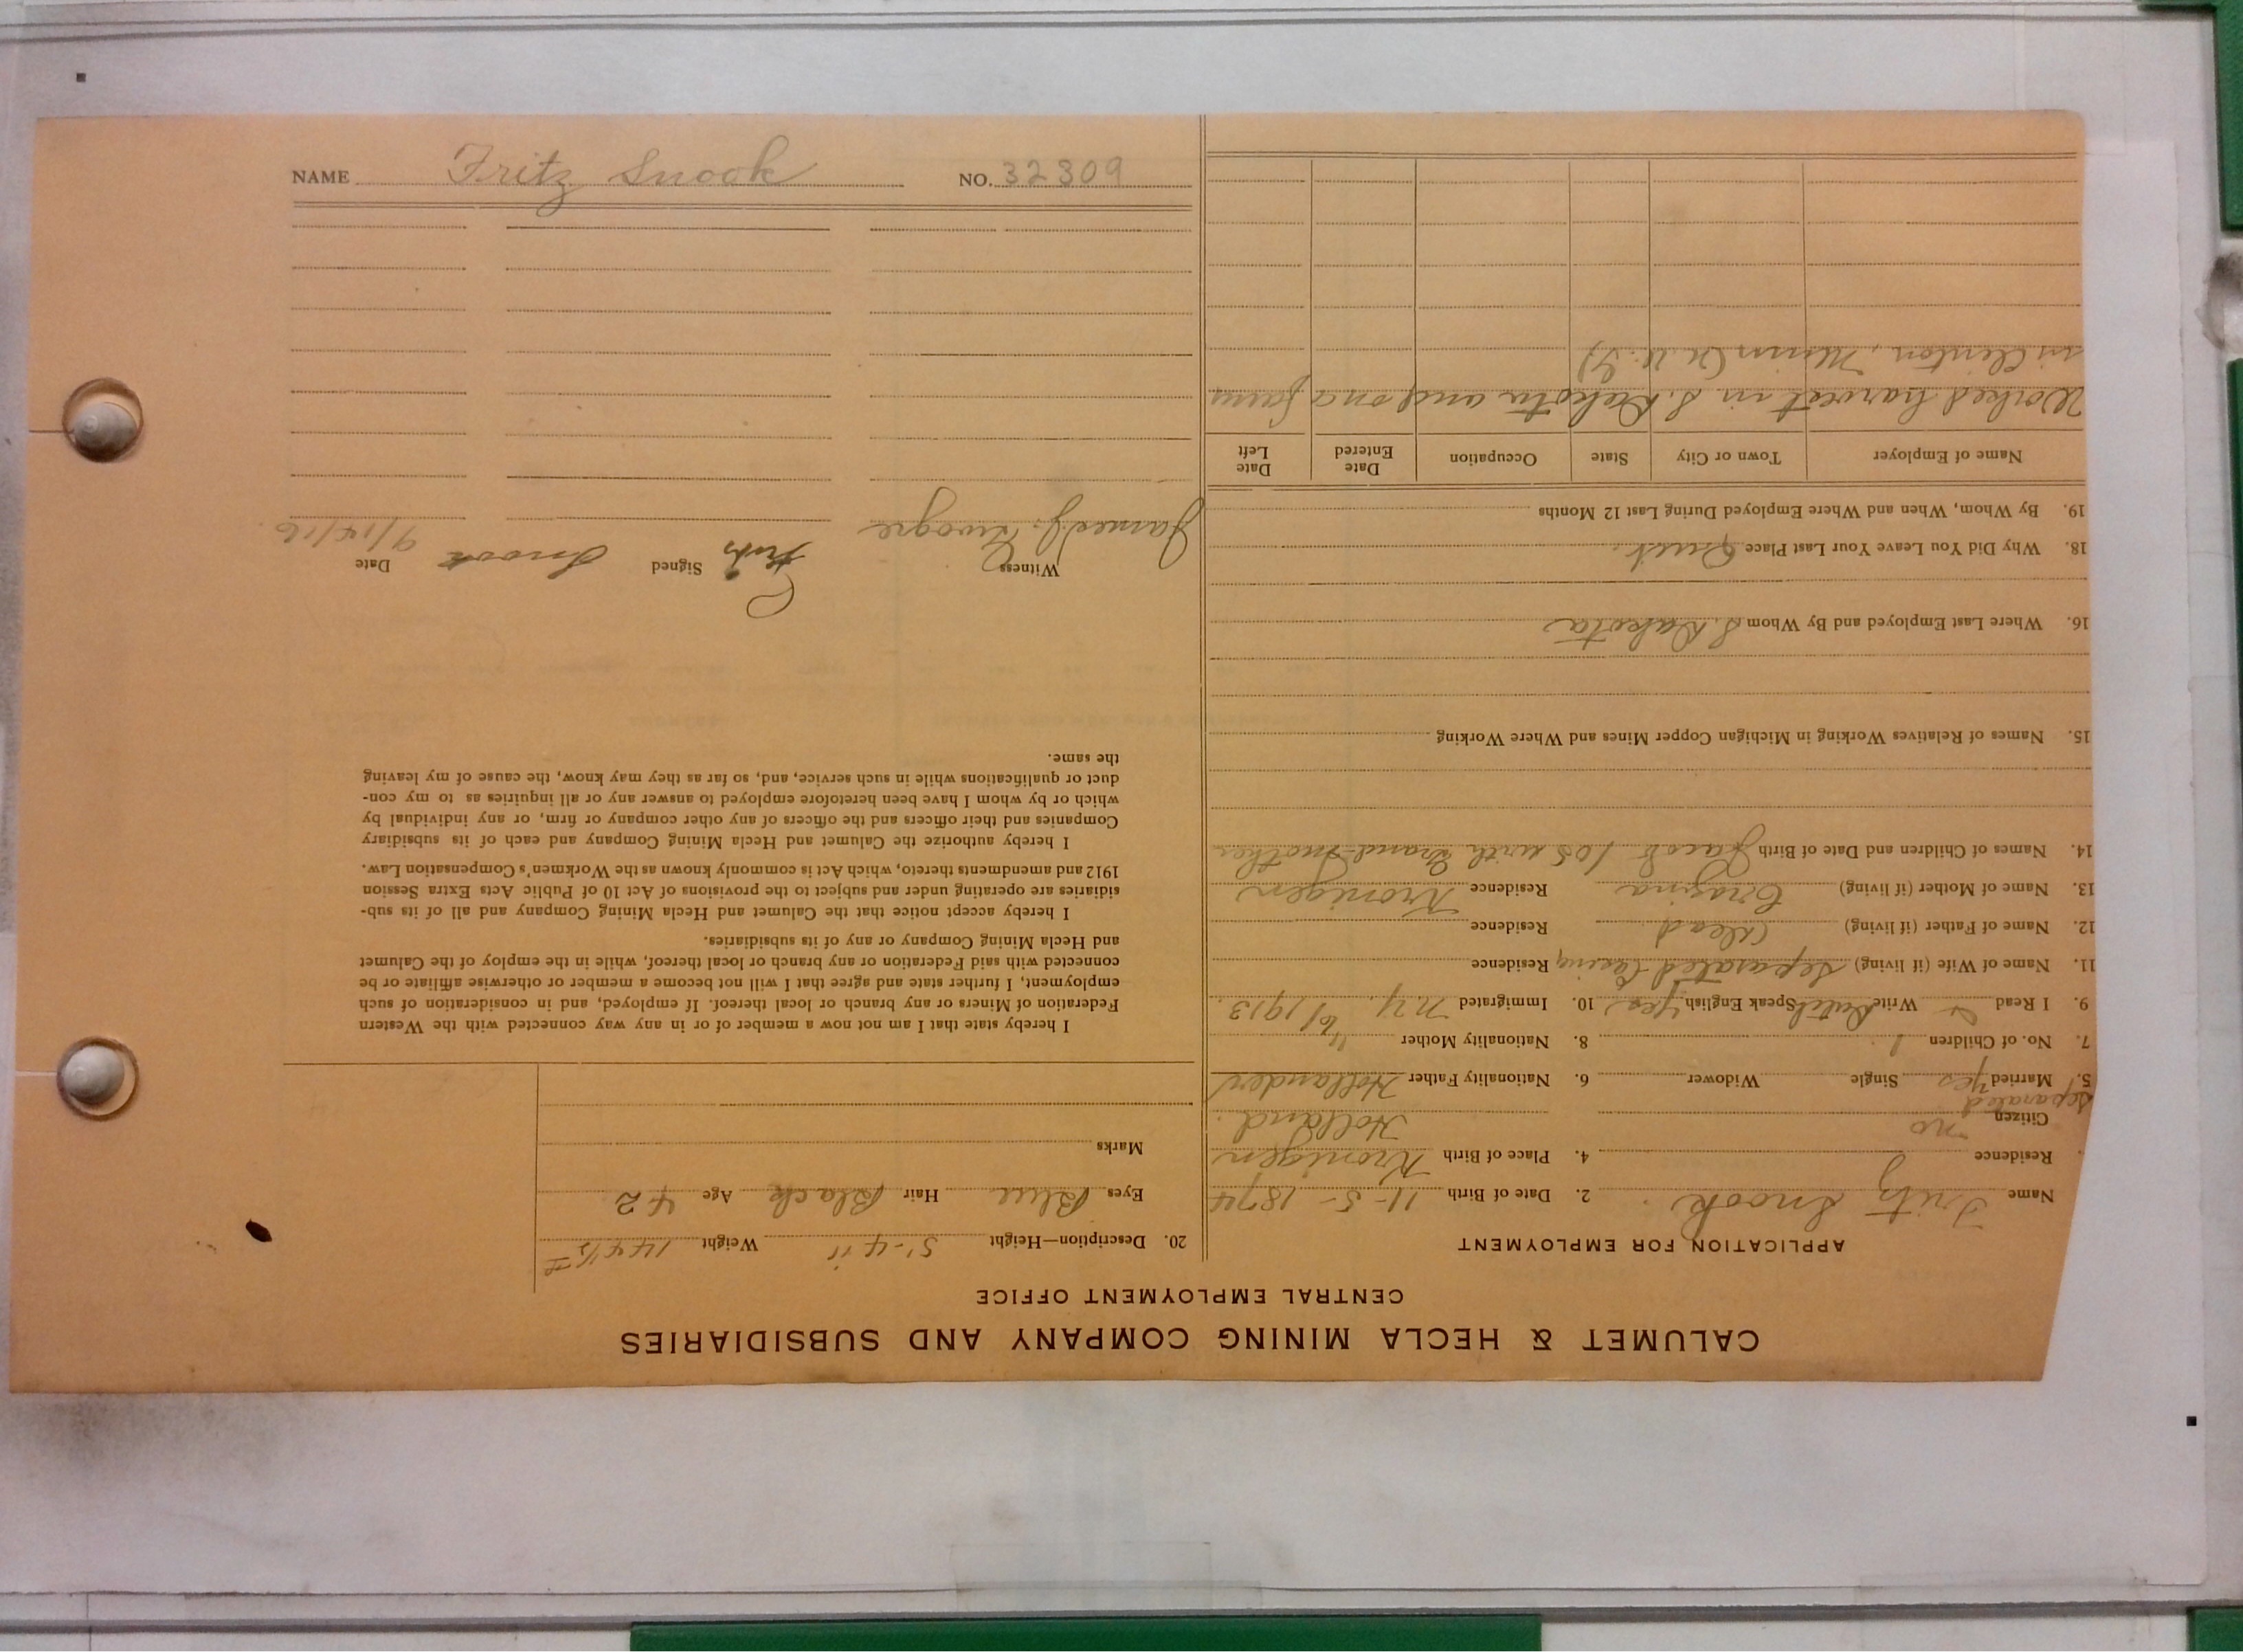 NAME Fritz Snook NO. 32309
CALUMET & HECLA MINING COMPANY AND SUBSIDIARIES
CENTRAL EMPLOYMENT OFFICE
APPLICATION FOR EMPLOYMENT
Name Fritz Snook. 2. Date of Birth 11-5-1874
Residence 4. Place of Birth Kronigen
Citizen no Holland.
separated
5. Married yes Single Widower 6. Nationality Father Hollander
7. No. of Children 1. 8. Nationality Mother "
9. I Read & Write Dutch Speak English yes 10. Immigrated N.Y. 6/1913.
11. Name of Wife (if living) separated Residence
12. Name of Father (if living) (dead Residence
13. Name of Mother (if living) Residence Kronigen
14. Names of Children and Date of Birth Jacob 10 with Grand-mother
15. Names of Relatives Working in Michigan Copper Mines and Where Working
16. Where Last Employed and By Whom S. Dakota
18. Why Did You Leave Your Last Place Quit.
19. By Whom, When and Where Employed During Last 12 Months
Name of Employer Town or City State Occupation Date Entered Date Left
Worked harvest in S. Dakota and on a farm
in Clinton, Minn
20. Description—Height 5'-4" Weight 144½
Eyes Blue Hair Black Age 42
Marks
I hereby state that I am not now a member of or in any way connected with the Western
Federation of Miners or any branch or local thereof. If employed, and in consideration of such
employment, I further state and agree that I will not become a member or otherwise affiliate or be
connected with said Federation or any branch or local thereof, while in the employ of the Calumet
and Hecla Mining Company or any of its subsidiaries.
I hereby accept notice that the Calumet and Hecla Mining Company and all of its sub-
sidiaries are operating under and subject to the provisions of Act 10 of Public Acts Extra Session
1912 and amendments thereto, which Act is commonly known as the Workmen's Compensation Law.
I hereby authorize the Calumet and Hecla Mining Company and each of its subsidiary
Companies and their officers and the officers of any other company or firm, or any individual by
which or by whom I have been heretofore employed to answer any or all inquiries as to my con-
duct or qualifications while in such service, and, so far as they may know, the cause of my leaving
the same.
Witness Signed Fritz Snook Date
James J. 9/14/16.